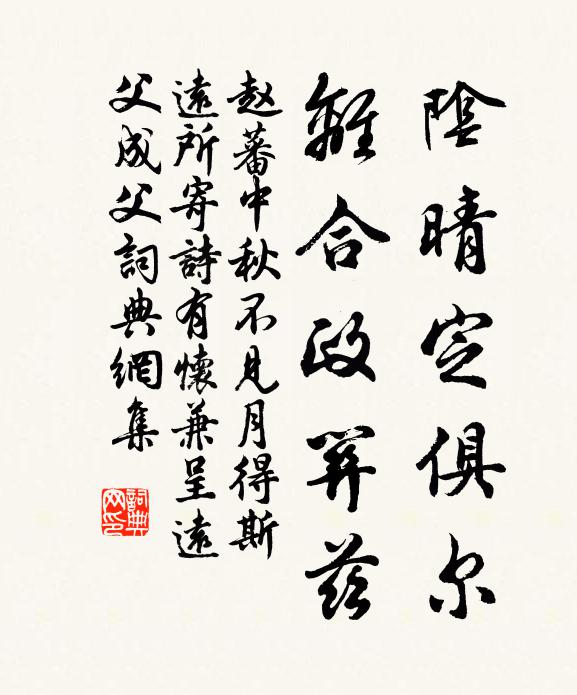 陰晴定俱尔
離合政茲
赵蕃中秋不見月得斯
遠所寄詩有懷兼呈遠
父成父詞典網集
詞典
网印